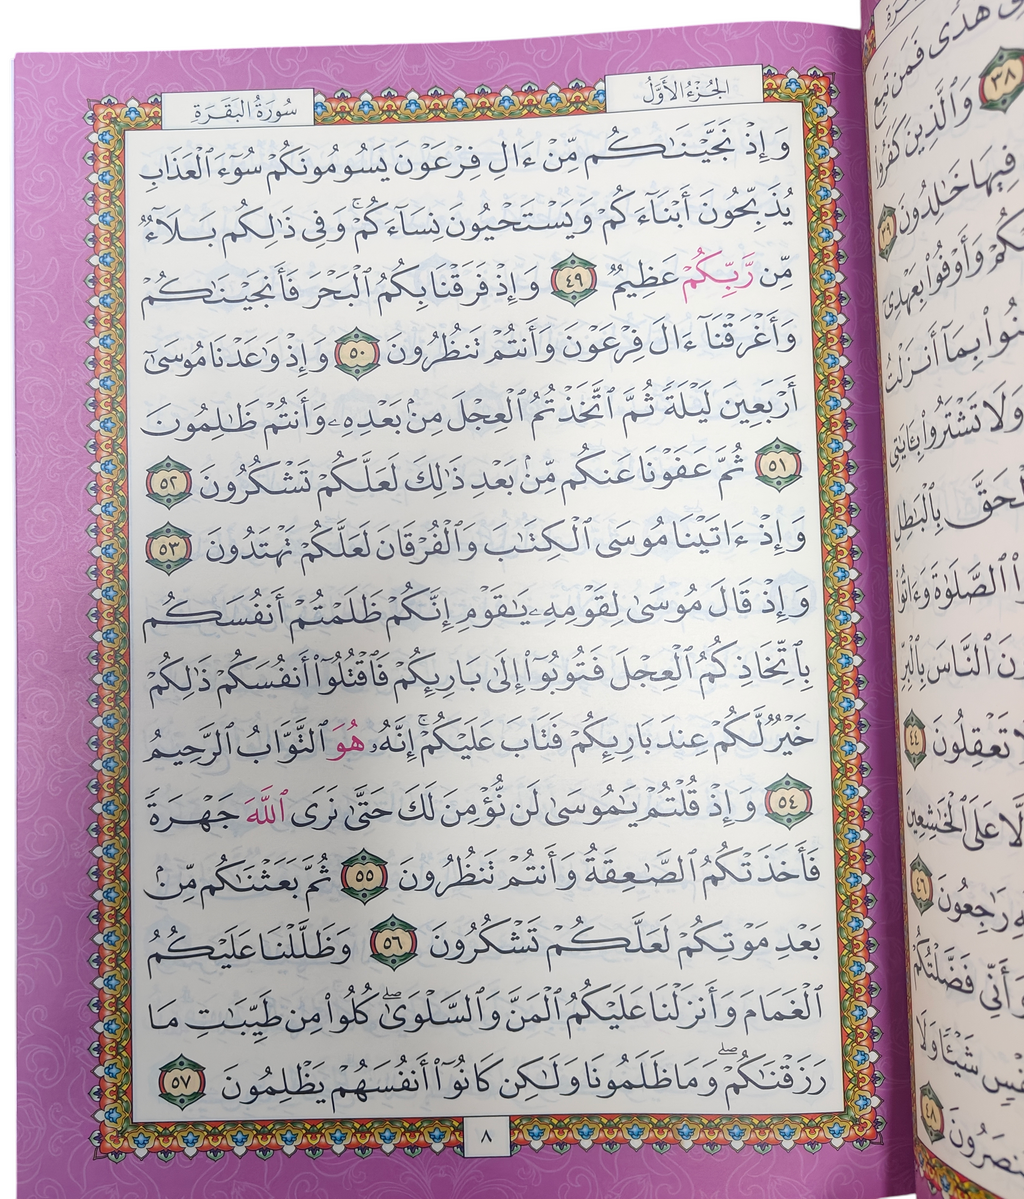 الجُزْءُ الأَوَّلُ
سُورَةُ البَقَرَةِ
وَإِذْ نَجَّيْنَـٰكُم مِّنْ ءَالِ فِرْعَوْنَ يَسُومُونَكُمْ سُوٓءَ ٱلْعَذَابِ
يُذَبِّحُونَ أَبْنَآءَكُمْ وَيَسْتَحْيُونَ نِسَآءَكُمْ ۚ وَفِى ذَٰلِكُم بَلَآءٌ
مِّن رَّبِّكُمْ عَظِيمٌ ٤٩ وَإِذْ فَرَقْنَا بِكُمُ ٱلْبَحْرَ فَأَنجَيْنَـٰكُمْ
وَأَغْرَقْنَآ ءَالَ فِرْعَوْنَ وَأَنتُمْ تَنظُرُونَ ٥٠ وَإِذْ وَٰعَدْنَا مُوسَىٰٓ
أَرْبَعِينَ لَيْلَةً ثُمَّ ٱتَّخَذْتُمُ ٱلْعِجْلَ مِنۢ بَعْدِهِۦ وَأَنتُمْ ظَـٰلِمُونَ
٥١ ثُمَّ عَفَوْنَا عَنكُم مِّنۢ بَعْدِ ذَٰلِكَ لَعَلَّكُمْ تَشْكُرُونَ ٥٢
وَإِذْ ءَاتَيْنَا مُوسَى ٱلْكِتَـٰبَ وَٱلْفُرْقَانَ لَعَلَّكُمْ تَهْتَدُونَ ٥٣
وَإِذْ قَالَ مُوسَىٰ لِقَوْمِهِۦ يَـٰقَوْمِ إِنَّكُمْ ظَلَمْتُمْ أَنفُسَكُم
بِٱتِّخَاذِكُمُ ٱلْعِجْلَ فَتُوبُوٓا۟ إِلَىٰ بَارِئِكُمْ فَٱقْتُلُوٓا۟ أَنفُسَكُمْ ذَٰلِكُمْ
خَيْرٌ لَّكُمْ عِندَ بَارِئِكُمْ فَتَابَ عَلَيْكُمْ ۚ إِنَّهُۥ هُوَ ٱلتَّوَّابُ ٱلرَّحِيمُ
٥٤ وَإِذْ قُلْتُمْ يَـٰمُوسَىٰ لَن نُّؤْمِنَ لَكَ حَتَّىٰ نَرَى ٱللَّهَ جَهْرَةً
فَأَخَذَتْكُمُ ٱلصَّـٰعِقَةُ وَأَنتُمْ تَنظُرُونَ ٥٥ ثُمَّ بَعَثْنَـٰكُم مِّنۢ
بَعْدِ مَوْتِكُمْ لَعَلَّكُمْ تَشْكُرُونَ ٥٦ وَظَلَّلْنَا عَلَيْكُمُ
ٱلْغَمَامَ وَأَنزَلْنَا عَلَيْكُمُ ٱلْمَنَّ وَٱلسَّلْوَىٰ ۖ كُلُوا۟ مِن طَيِّبَـٰتِ مَا
رَزَقْنَـٰكُمْ ۖ وَمَا ظَلَمُونَا وَلَـٰكِن كَانُوٓا۟ أَنفُسَهُمْ يَظْلِمُونَ ٥٧
٨
هُدًى فَمَن تَبِعَ
٣٨ وَٱلَّذِينَ كَفَرُوا۟
فِيهَا خَـٰلِدُونَ ٣٩
وَأَوْفُوا۟ بِعَهْدِىٓ
بِمَآ أَنزَلْتُ
وَلَا تَشْتَرُوا۟ بِـَٔايَـٰتِى
ٱلْحَقَّ بِٱلْبَـٰطِلِ
ٱلصَّلَوٰةَ وَءَاتُوا۟
ٱلنَّاسَ بِٱلْبِرِّ
تَعْقِلُونَ ٤٤
إِلَّا عَلَى ٱلْخَـٰشِعِينَ
رَٰجِعُونَ ٤٦
وَأَنِّى فَضَّلْتُكُمْ
شَيْـًٔا وَلَا
٤٨